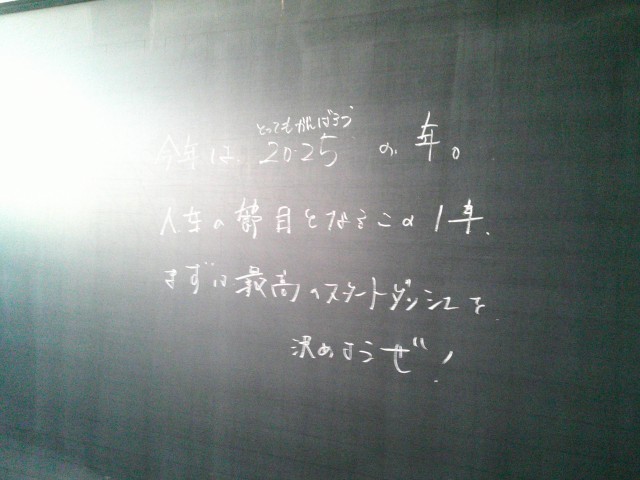 とってもがんばろう
今年は、2025の年。
人生の節目となるこの1年、
まずは最高のスタートダッシュを
決めようぜ!